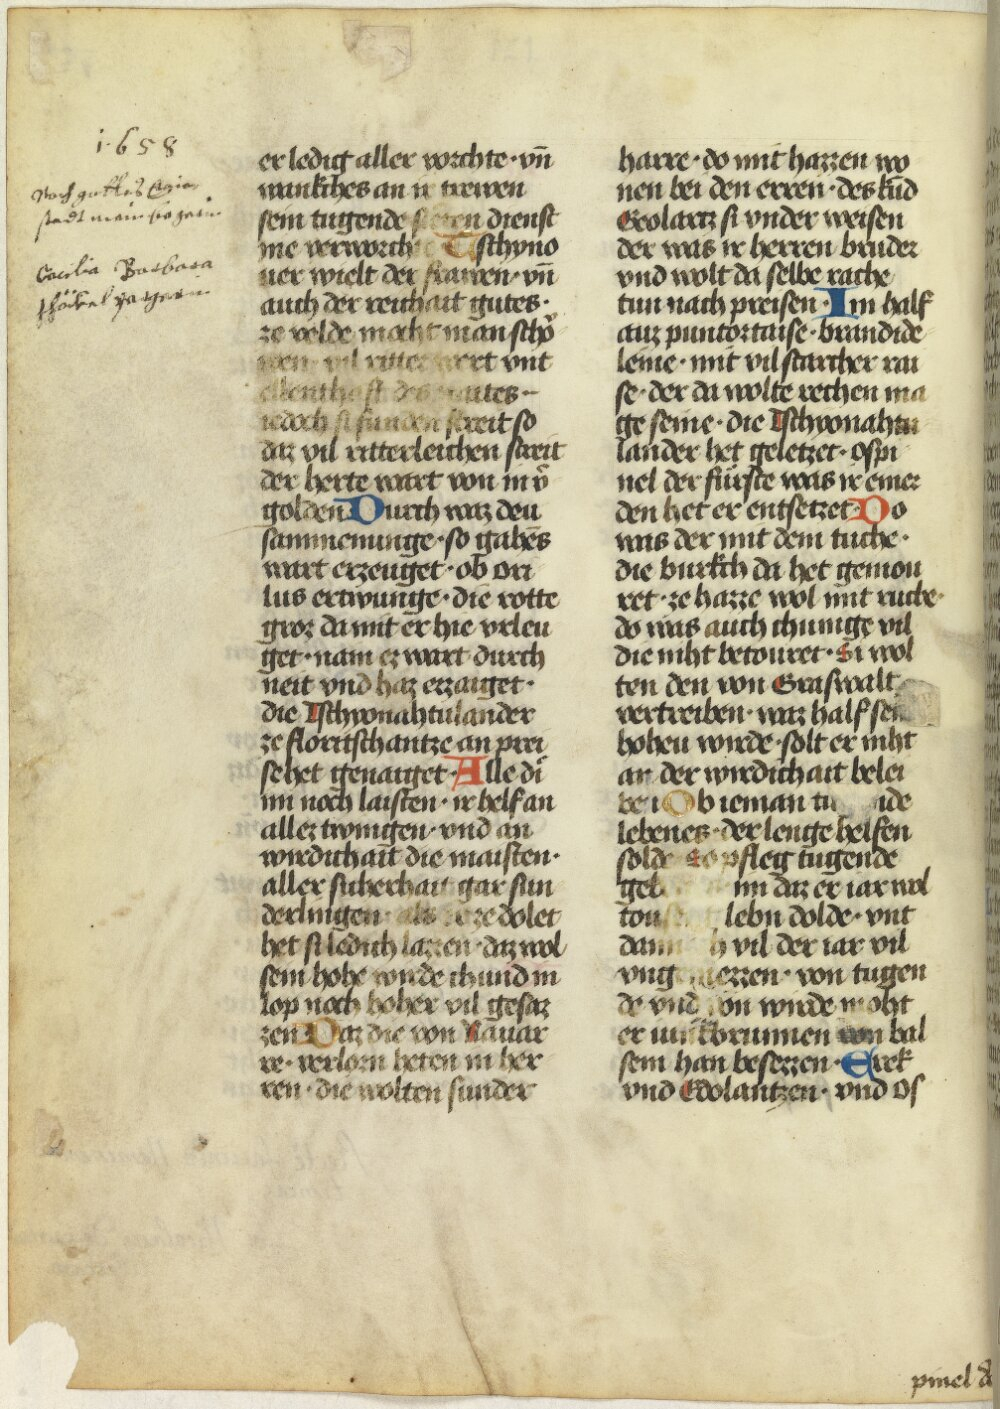 1658
Cacilia Barbara
er ledig aller vorchte · vn̄
wankches an ir trewen
sein tugende dienst
me verworcht Tschyno
uer wielt der frawen · vn̄
auch der reichait gutes ·
ze velde mocht man schō
wen vil ritter wert vnt
ellenthaft des mutes
iedoch si funden streit so
daz vil ritterleichen streit
der herte wart von in v̄
golden Durch waz deu
sammenunge · so gahēs
wart erzeuget · ob ori
lus ertwunge · die rotte
groz da mit er hie vrleu
get · nam ez wart durch
neit vnd haz erzaiget ·
die Tschyonahtulander
ze floritschantze an prei
se het genaiget · Alle di
im noch laisten · ir helf an
allez twingen · vnd an
wirdichait die maisten ·
aller sicherhait gar sun
derlingen · ze dolet
het si ledich lazzen · daz wol
sein hohe wirde chund in
lop noch hoher vil gesaz
zen Daz die von Nauar
re · verlorn heten in her
ren · die wolten sunder
harre · do mit hazzen wo
nen bei den erren · des kūd
Geolartz si vnder weisen
der was ir herren bruder
vnd wolt da selbe rache
tun nach preisen · Im half
auz puntortaise · brandide
leine · mit vil starcher rai
se · der da wolte rechen ma
ge seine · die Tschyonahtu
lander het geletzet · ospi
nel der fürste was ir einer
den het er entsetzet · Do
was der mit dem tuche ·
die burkch da het gemou
ret · ze hazze wol mit ruche ·
do was auch chunige vil
die niht betouret · Si wol
ten den von Graswalt
vertreiben · waz half sein
hoheu wirde · solt er niht
an der wirdichait belei
ben Ob ieman tu ide
lebenes · der lenge helfen
solde so pfleg tugende
geb im daz er iar wol
tou lebn dolde · vnt
dann h vil der iar vil
vng ezzen · von tugen
de vnd von wirde moht
er iunkbrunnen von bal
sem han besezzen · Erek
vnd Edolantzen · vnd Os
pinel d